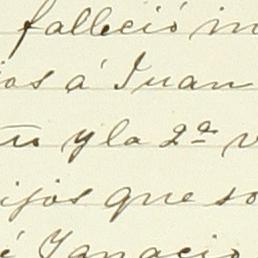 falleció in
os á Juan
y la 2ª v
ijos que so
é Ignacio